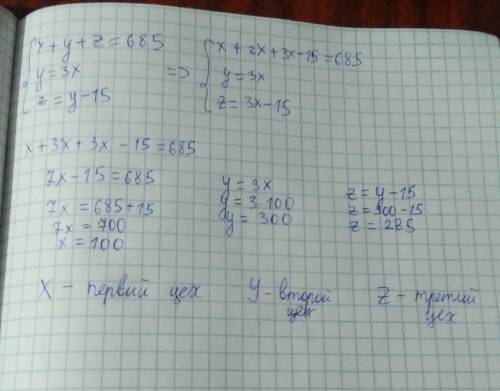 x + y + z = 685
y = 3x
z = y - 15
=>
x + 2x + 3x - 15 = 685
y = 3x
z = 3x - 15
x + 3x + 3x - 15 = 685
7x - 15 = 685
7x = 685 + 15
7x = 700
x = 100
y = 3x
y = 3 · 100
y = 300
z = y - 15
z = 300 - 15
z = 285
X - первый цех
У - второй
цех
Z - третий
цех